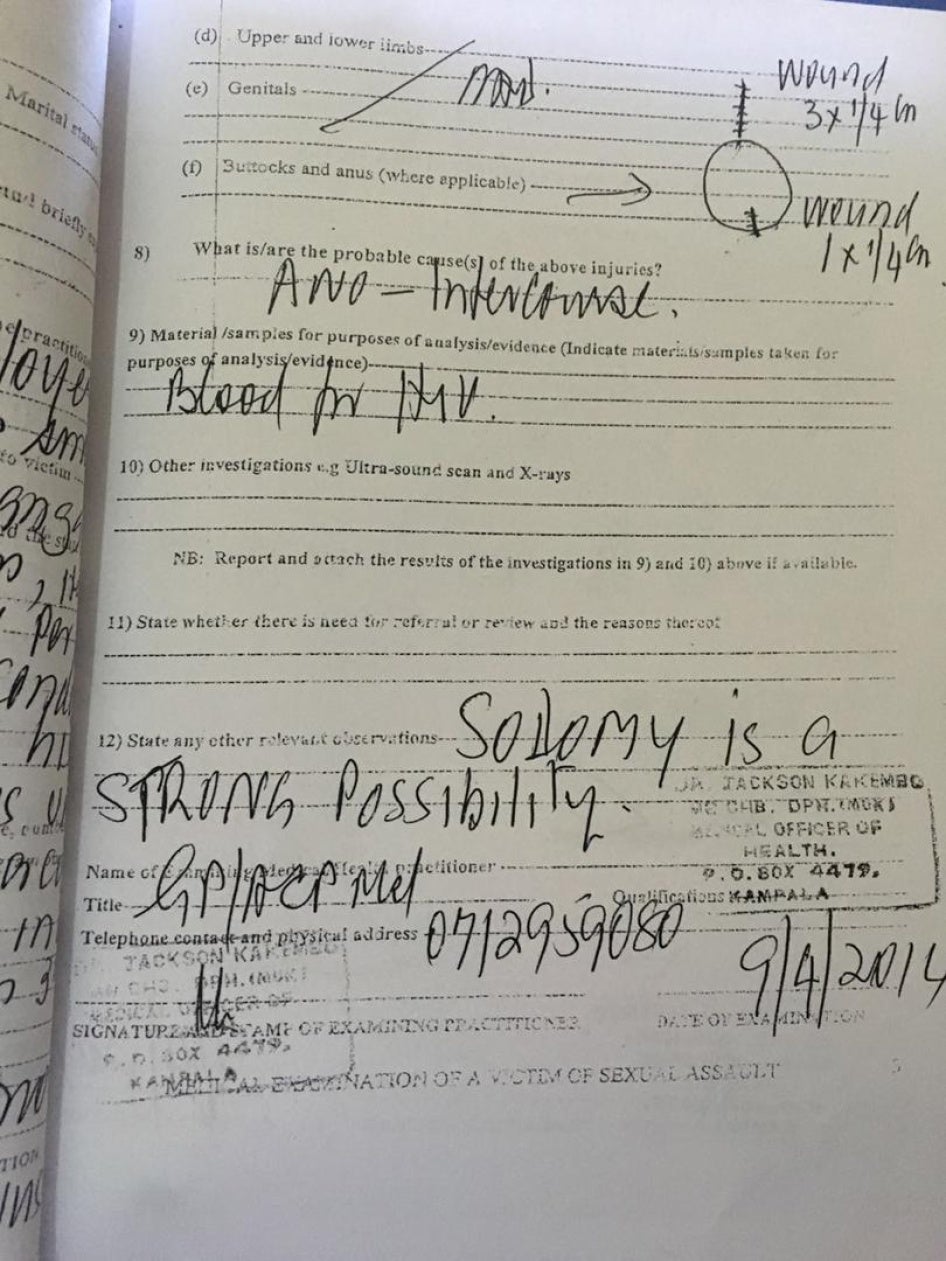 (d) Upper and lower limbs
wound
3 x 1/4 cm
(e) Genitals
(f) Buttocks and anus (where applicable)
wound
1 x 1/4 cm
8) What is/are the probable cause(s) of the above injuries?
Ano - Intercourse.
9) Material /samples for purposes of analysis/evidence (Indicate materials/samples taken for
purposes of analysis/evidence)
Blood for HIV.
10) Other investigations e.g Ultra-sound scan and X-rays
NB: Report and attach the results of the investigations in 9) and 10) above if available.
11) State whether there is need for referral or review and the reasons thereof
12) State any other relevant observations SODOMY is a
STRONG Possibility.
DR. JACKSON KAKEMBO
MB CHB. DPH. (MUK)
MEDICAL OFFICER OF
HEALTH.
P.O.BOX 4479.
KAMPALA
Name of Examining Medical/Health practitioner
Title Qualifications
Telephone contact and physical address 0712959080
DR. JACKSON KAKEMBO
MB CHB. DPH. (MUK)
MEDICAL OFFICER OF
9/4/2014
SIGNATURE AND STAMP OF EXAMINING PRACTITIONER DATE OF EXAMINATION
P.O.BOX 4479.
KAMPALA
MEDICAL EXAMINATION OF A VICTIM OF SEXUAL ASSAULT
Marital
briefly